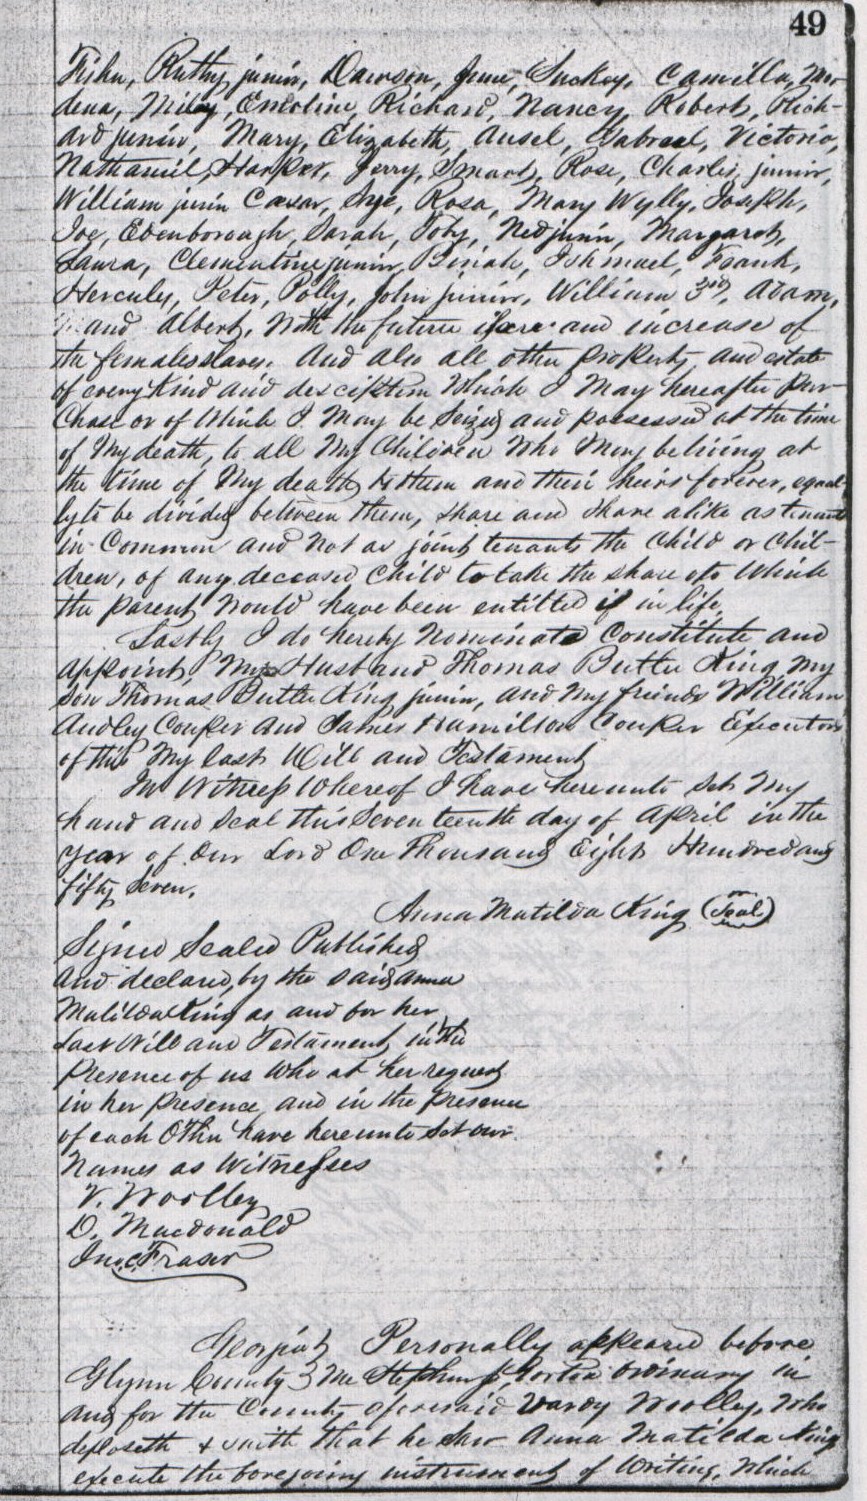 49
Ruthy junior, Dawson, June, Suckey, Camilla, Mo-
dena, Miley, Emoline, Richard, Nancy, Robert, Rich-
ard junior, Mary, Elizabeth, Ansel, Gabreal, Victoria,
Nathaniel, Harper, Jerry, Smart, Rose, Charles junior,
William junior Cæsar, Rosa, Mary Wylly, Joseph,
Joe, Edenborough, Sarah, Toby, Ned junior, Margaret,
Laura, Clementine junior, Binah, Ishmael, Frank,
Hercules, Peter, Polly, John junior, William 3rd, Adam,
and Albert, With the future issue and increase of
the females slaves. And also all other property and estate
of every Kind and desciption Which I May hereafter Pur-
Chase or of Which I May be Seized and possessed at the time
of My death, to all My Children Who May be living at
the time of My death to them and their heirs forever, equal-
ly to be divided between them, share and share alike as tenants
in Common and Not as joint tenants the Child or Chil-
dren, of any deceased Child to take the share to Which
the parent Would have been entitled if in life.
Lastly I do hereby Nominate Constitute and
appoint My Husband Thomas Butler King, My
Son Thomas Butler King junior, and My friends William
Audley Couper and James Hamilton Couper Executors
of this My last Will and Testament
In Witness Whereof I have hereunto Set My
hand and Seal this Seventeenth day of April in the
Year of Our Lord One Thousand Eight Hundred and
fifty Seven.
Anna Matilda King (Seal)
Signed Sealed Published
and declared, by the said Anna
Matilda King as and for her
Last Will and Testament, in the
Presence of us Who at her request
in her presence, and in the presence
of each Other have hereunto Set our
Names as Witnesses
V. Woolley
D. Macdonald
Jno. C. Fraser
Georgia } Personally appeared before
Glynn County } Me Ordinary in
and for the County aforesaid Vardy Woolley, Who
deposeth & saith that he Saw Anna Matilda King
execute the foregoing instrument of Writing, Which